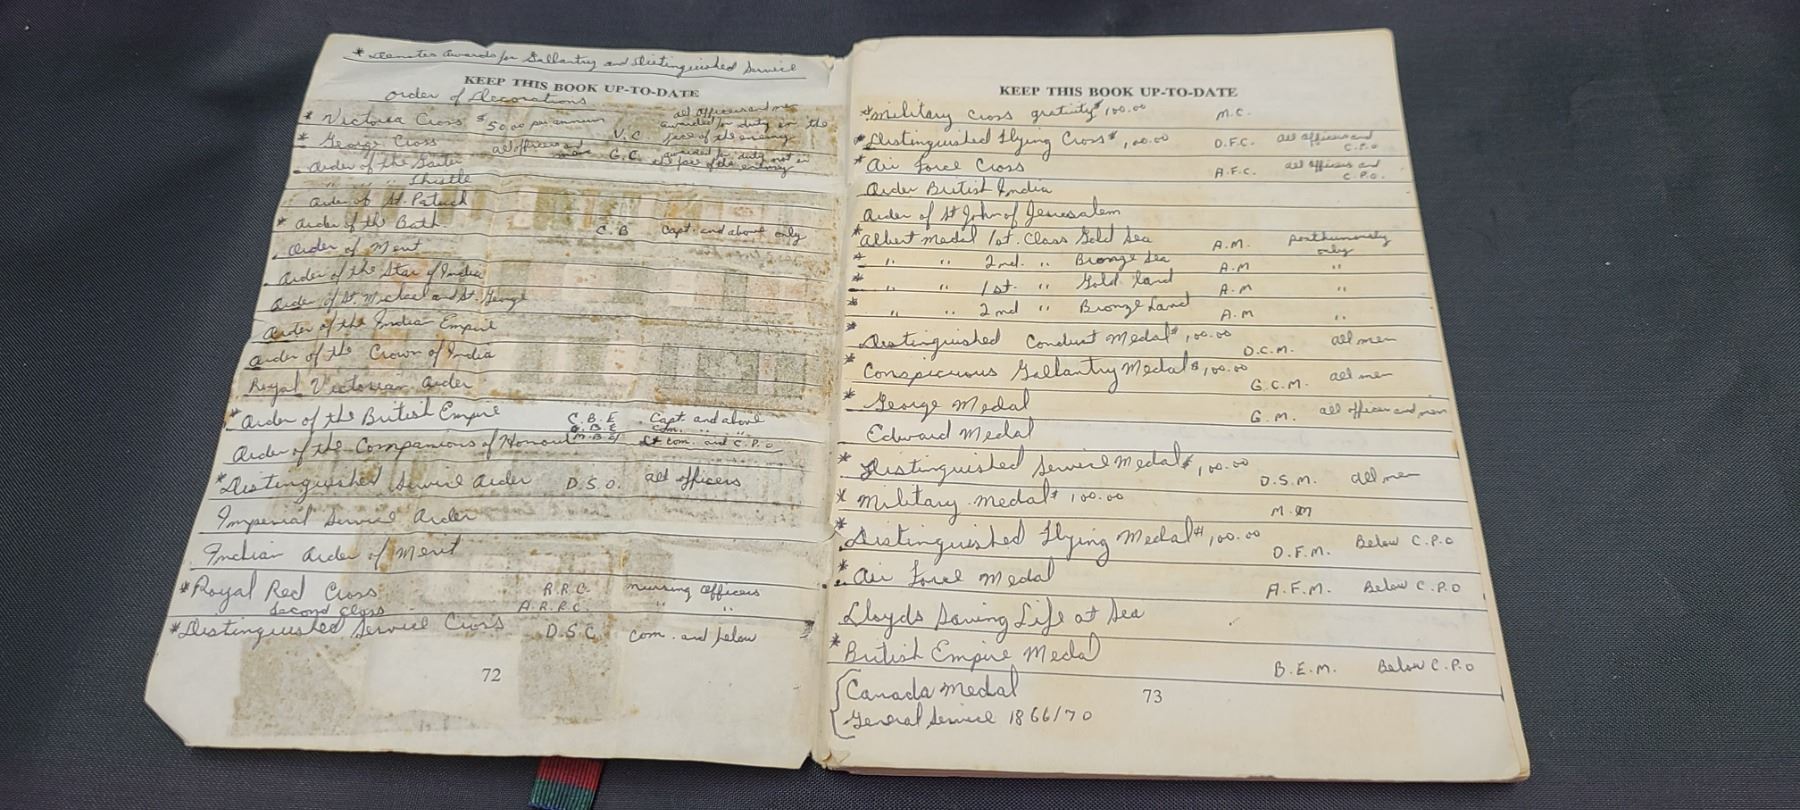 * Denotes Awards for Gallantry and Distinguished Service
KEEP THIS BOOK UP-TO-DATE
Order of Decorations
* Victoria Cross $50.00 per annum V.C all officers and men awarded for duty in the face of the enemy
* George Cross all officers and men G.C. awarded for duty not in the face of the enemy
Order of the Garter
" " " Thistle
Order of St. Patrick
* Order of the Bath C.B Capt. and above only
Order of Merit
Order of the Star of India
Order of St. Michael and St. George
Order of the Indian Empire
Order of the Crown of India
Royal Victorian Order
* Order of the British Empire C.B.E Capt. and above
O.B.E Com. " "
Order of the Companions of Honour M.B.E Lt com. and C.P.O
* Distinguished Service Order D.S.O. all officers
Imperial Service Order
Indian Order of Merit
* Royal Red Cross R.R.C. nursing officers
Second Class A.R.R.C. " "
* Distinguished Service Cross D.S.C. Com. and below
72
KEEP THIS BOOK UP-TO-DATE
* Military Cross gratuity $100.00 M.C.
* Distinguished Flying Cross $100.00 D.F.C. all officers and C.P.O
* Air Force Cross A.F.C. all officers and C.P.O.
Order British India
Order of St John of Jerusalem
* Albert Medal 1st. Class Gold Sea A.M. posthumously only
* " " 2nd. " Bronze Sea A.M "
* " " 1st. " Gold land A.M "
* " " 2nd " Bronze Land A.M "
* Distinguished Conduct Medal $100.00 D.C.M. all men
* Conspicuous Gallantry Medal $100.00 G.C.M. all men
* George Medal G.M. all officers and men
Edward Medal
* Distinguished Service Medal $100.00 D.S.M. all men
* Military Medal $100.00 M.M
* Distinguished Flying Medal $100.00 D.F.M. Below C.P.O
* Air Force Medal A.F.M. Below C.P.O
Lloyds Saving Life at Sea
* British Empire Medal B.E.M. Below C.P.O
Canada Medal
General Service 1866/70
73